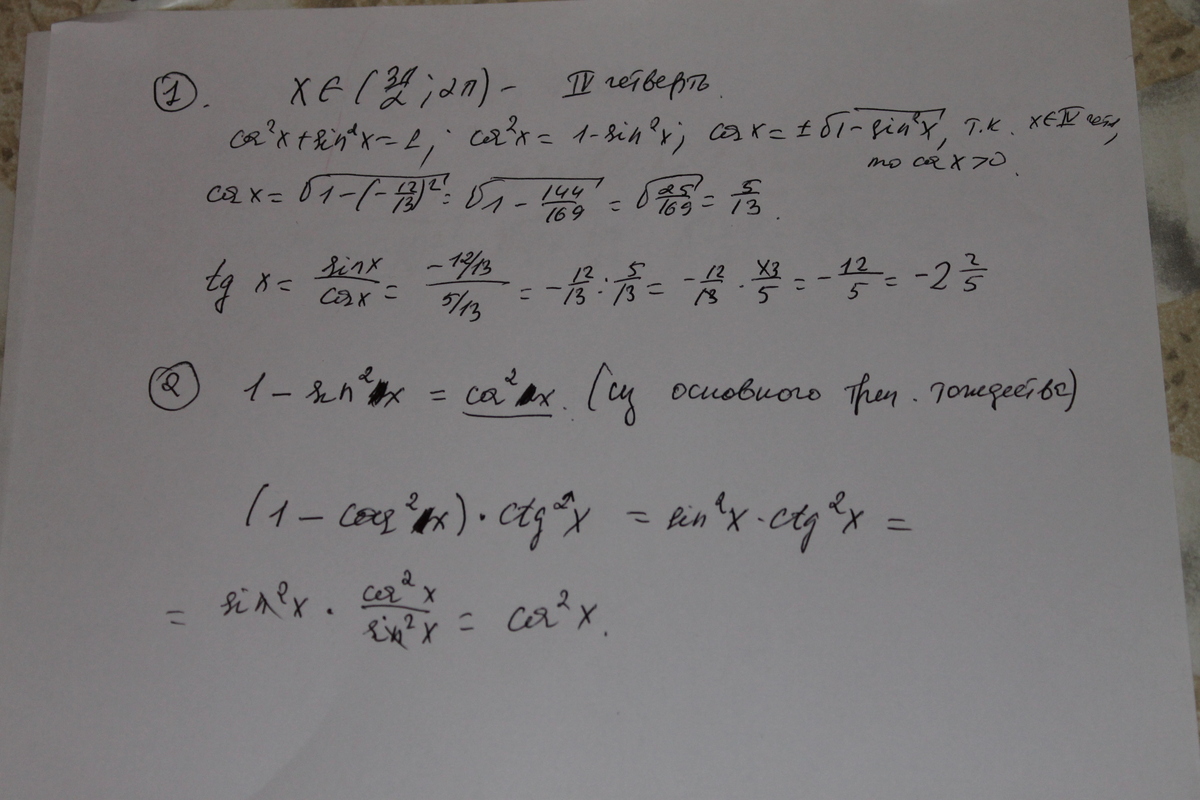 ① . x ∈ (3π/2 ; 2π) – IV четверть.
cos²x + sin²x = 1; cos²x = 1 - sin²x; cos x = ±√(1 - sin²x), т.к. x ∈ IV четв,
то cos x > 0.
cos x = √(1 - (-12/13)²) = √(1 - 144/169) = √(25/169) = 5/13.
tg x = sin x / cos x = (-12/13)/(5/13) = -12/13 : 5/13 = -12/13 · 13/5 = -12/5 = -2 2/5
② 1 - sin²x = cos²x. (из основного триг. тождества)
(1 - cos²x) · ctg²x = sin²x · ctg²x =
= sin²x · cos²x/sin²x = cos²x.